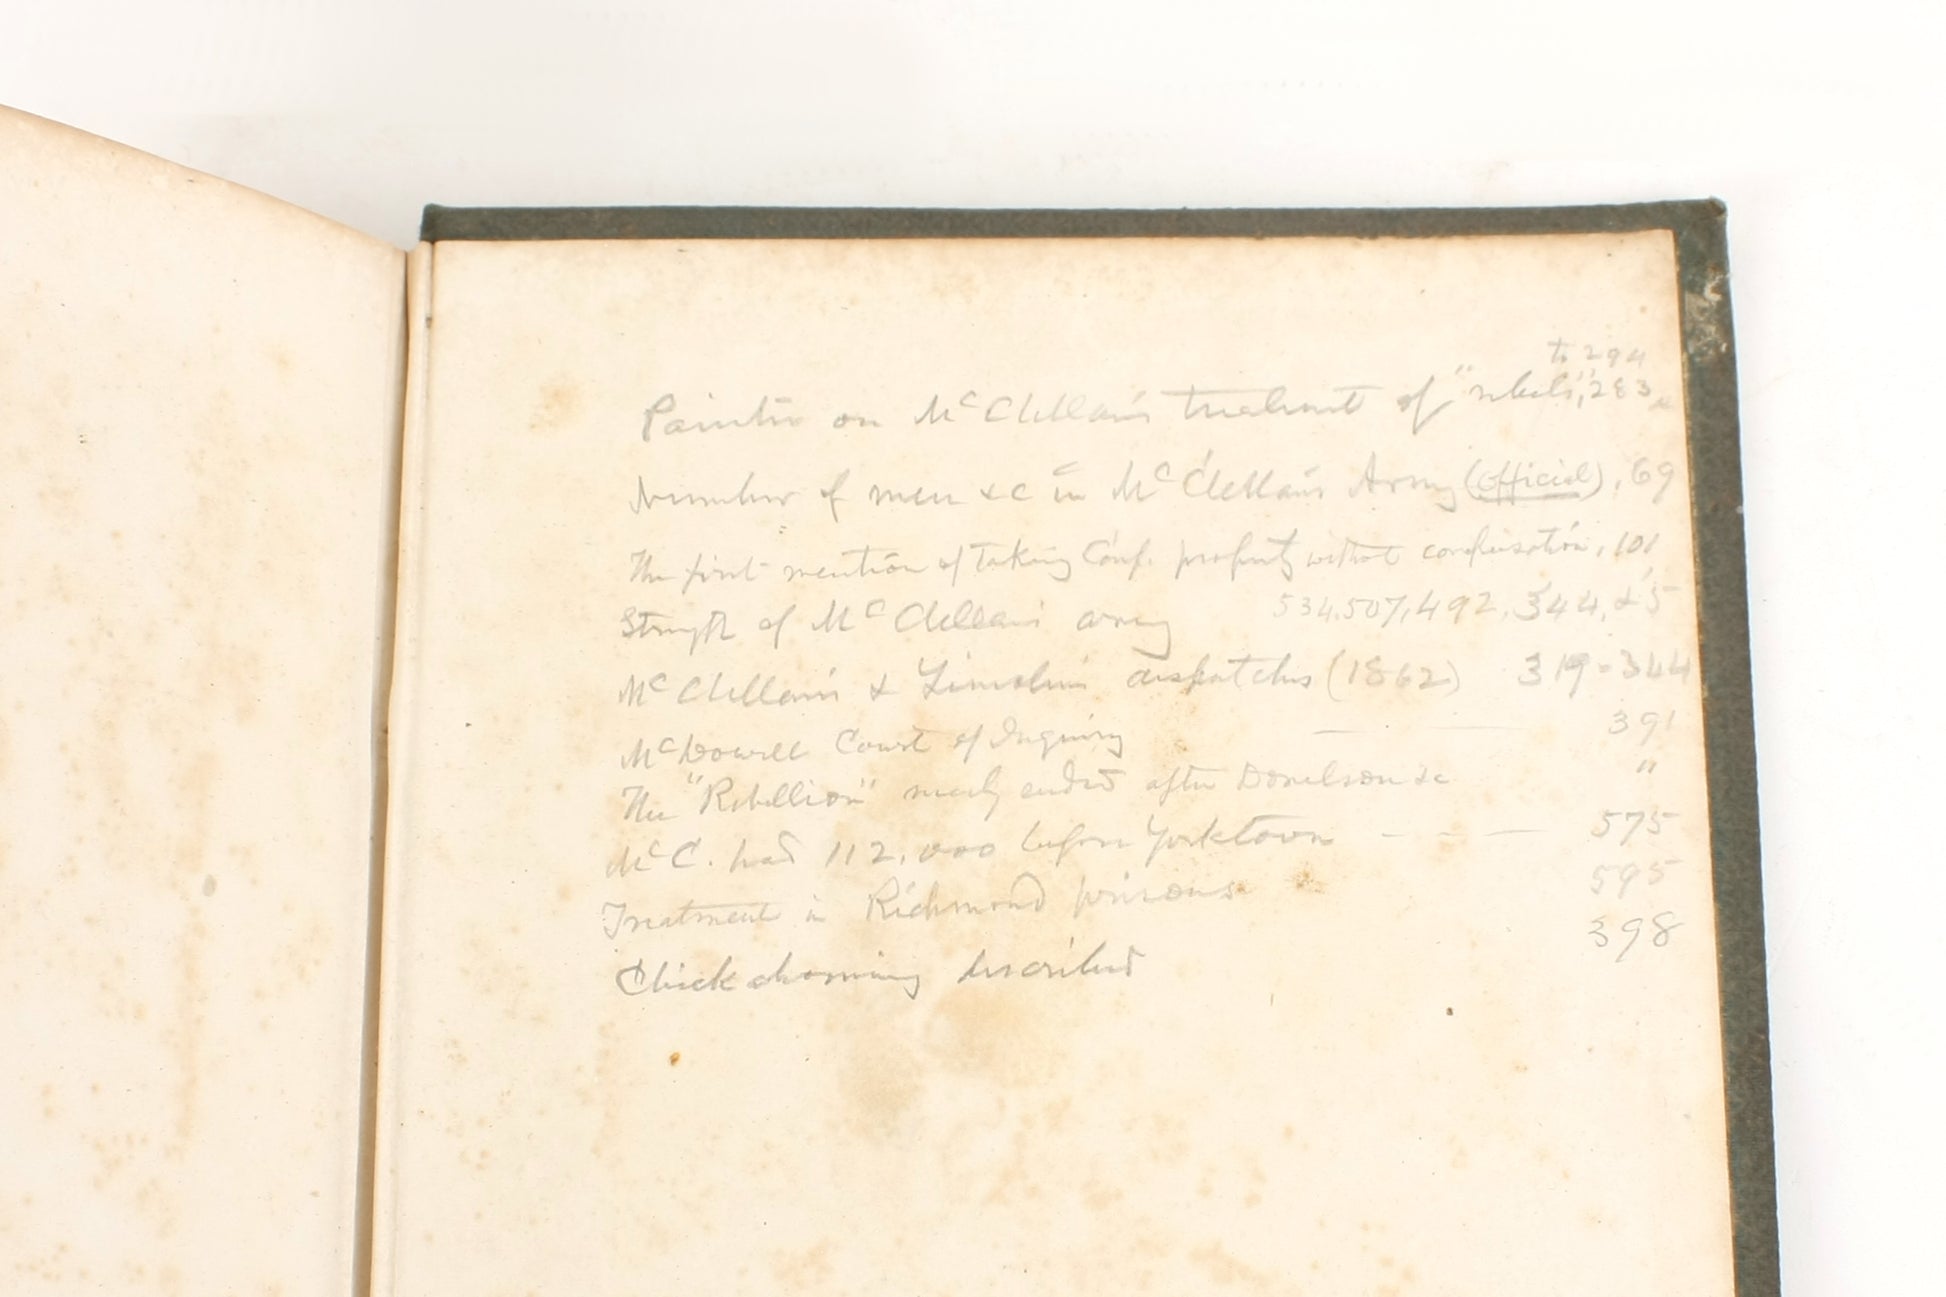 to 294
Painter on McClellan's treatment of "rebels", 283
Number of men &c in McClellan's Army (Official), 69
The first mention of taking Conf. property without compensation, 101
Strength of McClellan's army 534, 507, 492, 344, & 5
McClellan's & Lincoln's dispatches (1862) 319-344
McDowell Court of Inquiry — — 391
The "Rebellion" nearly ended after Donelson &c "
McC. had 112,000 before Yorktown — — — 575
Treatment in Richmond prisons 595
Chickahominy described 398